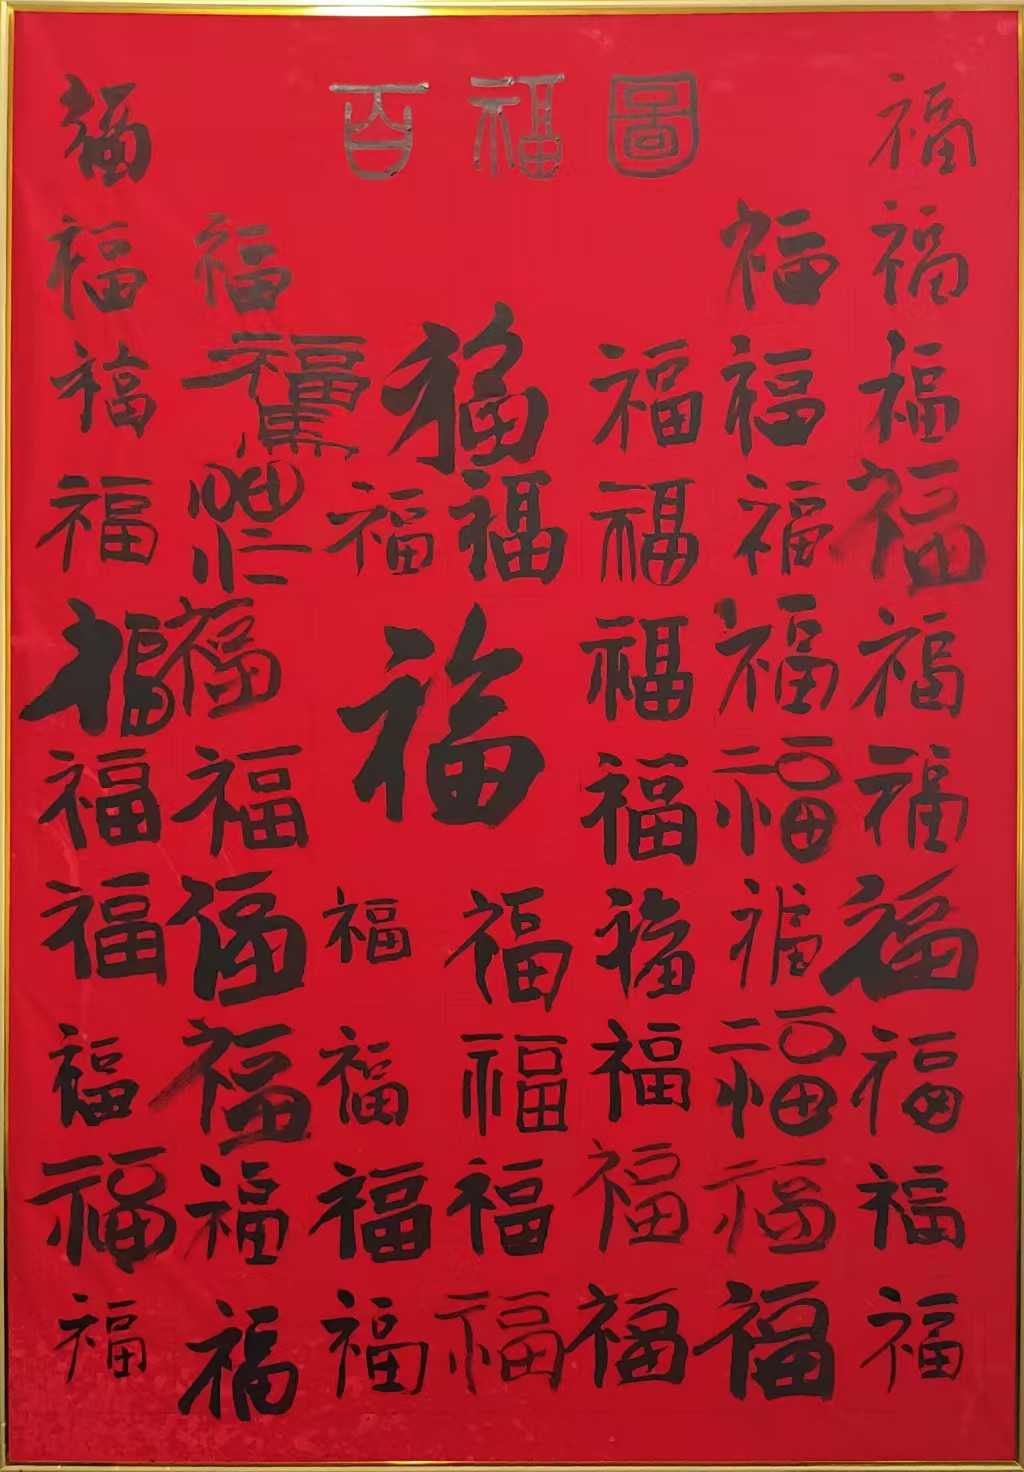 福 百福圖 福
福 福 福 福
福 福 福 福 福
福 福 福 福 福 福
福 福 福 福 福 福
福 福 福 福 福
福 福 福 福 福 福 福
福 福 福 福 福 福 福
福 福 福 福 福 福 福
福 福 福 福 福 福 福